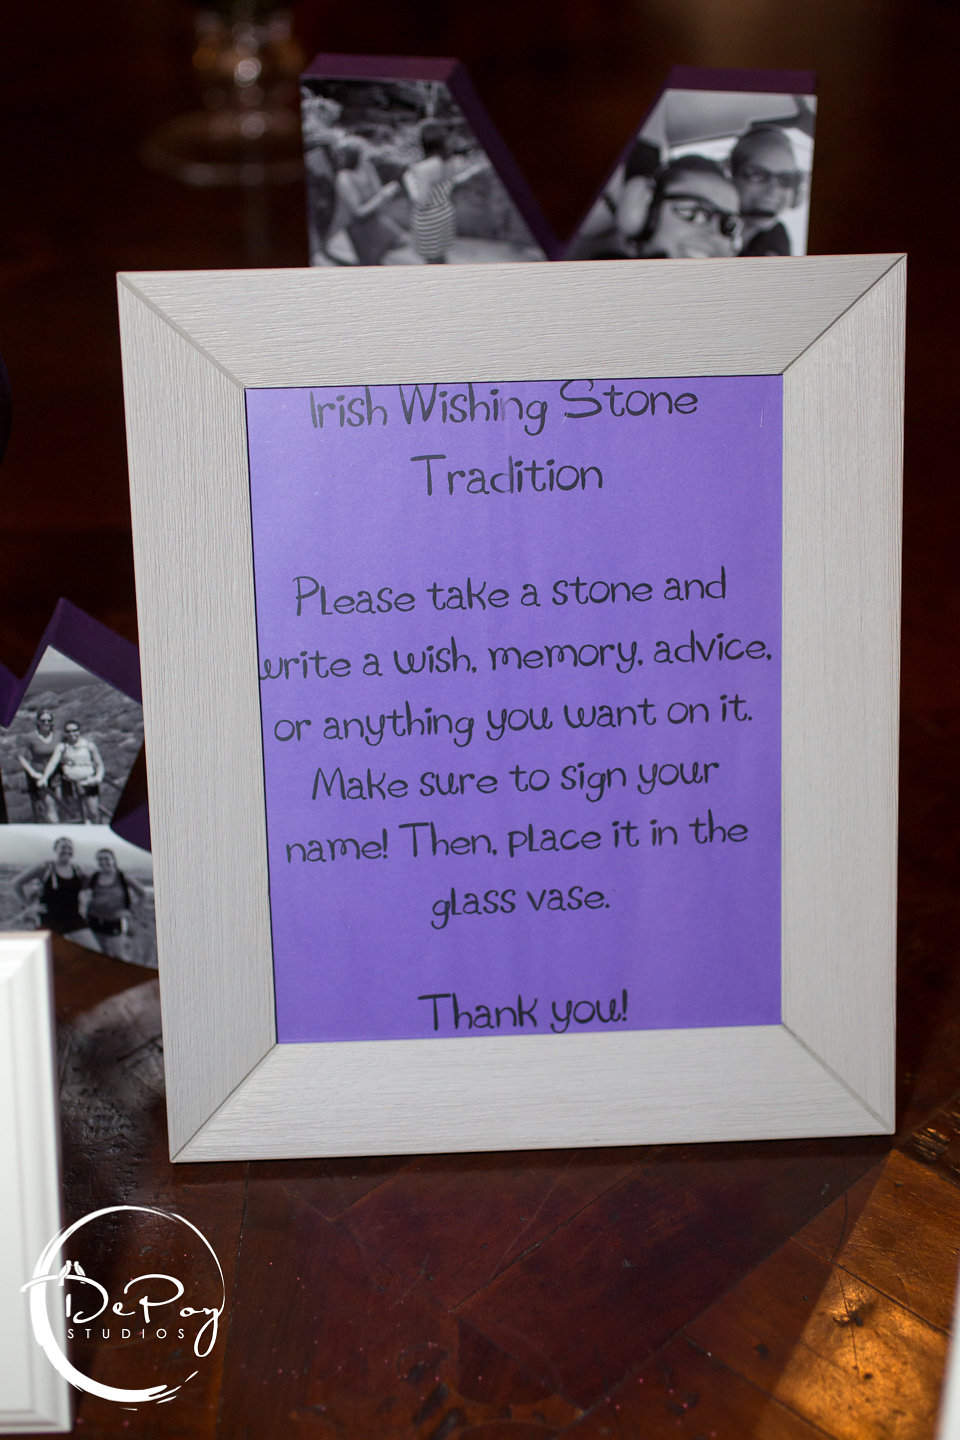 Irish Wishing Stone
Tradition
Please take a stone and
write a wish, memory, advice,
or anything you want on it.
Make sure to sign your
name! Then, place it in the
glass vase.
Thank you!
DePoy
STUDIOS